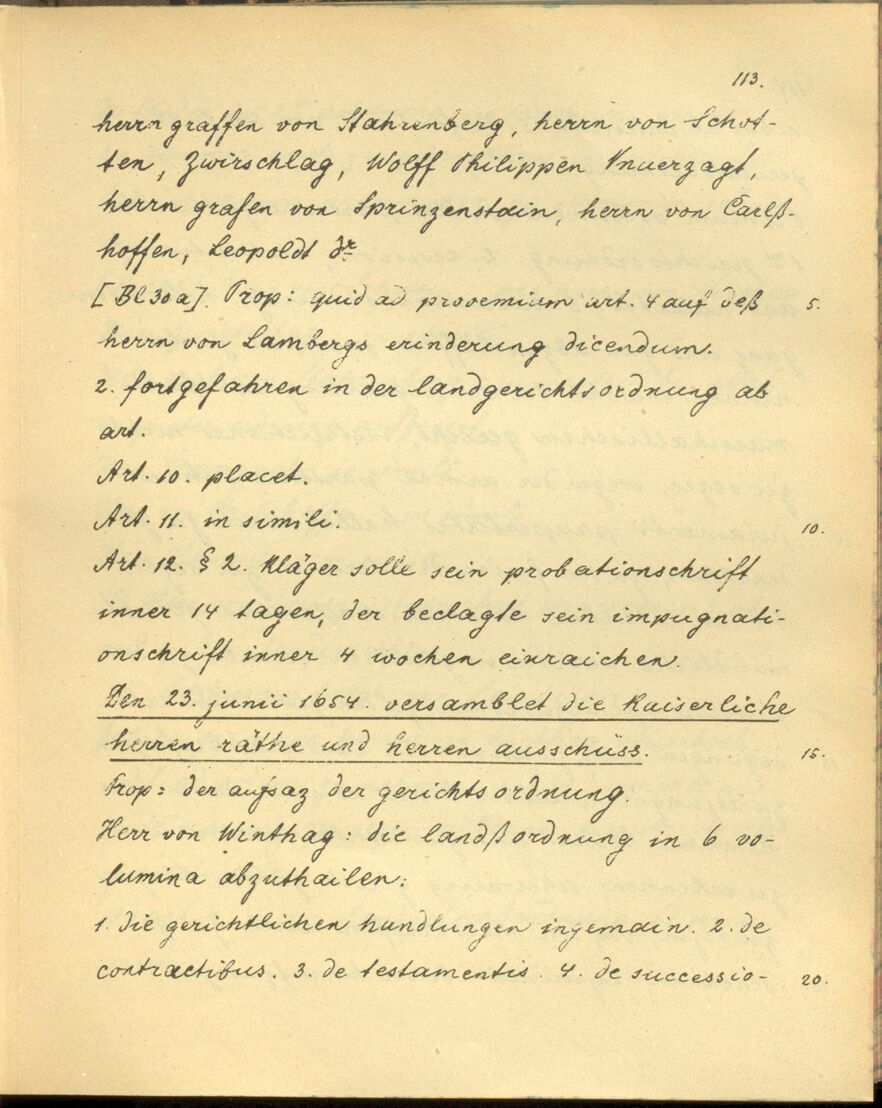 113.
herrn graffen von Stahrenberg, herrn von Schot-
ten, Zwirschlag, Wolff Philippen Vnuerzagt,
herrn grafen von Sprinzenstain, herrn von Carlß-
hoffen, Leopoldt dr.
[Bl 30a]. Prop: quid ad prooemium art. 4 auf deß 5.
herrn von Lambergs erinderung dicendum.
2. fortgefahren in der landgerichtsordnung ab
art.
Art. 10. placet.
Art. 11. in simili. 10.
Art. 12. § 2. Kläger solle sein probationschrift
inner 14 tagen, der beclagte sein impugnati-
onschrift inner 4 wochen einraichen.
Den 23. junii 1654. versamblet die Kaiserliche
herren räthe und herren ausschüss. 15.
Prop: der aufsaz der gerichtsordnung.
Herr von Winthag: die landßordnung in 6 vo-
lumina abzuthailen:
1. die gerichtlichen handlungen ingemain. 2. de
contractibus. 3. de testamentis. 4. de successio- 20.